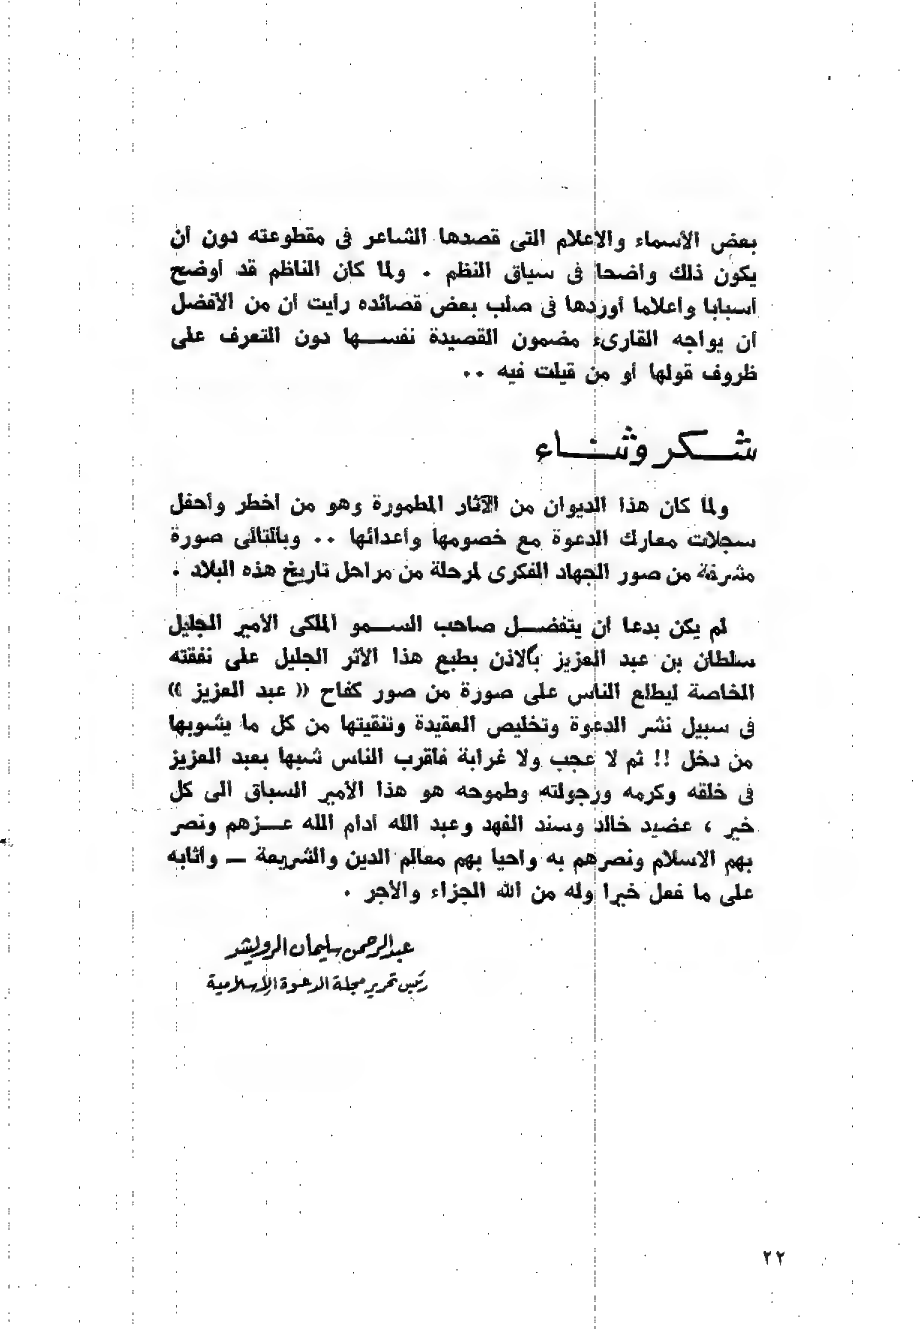 بعض الأسماء والإعلام التى قصدها الشاعر فى مقطوعته دون أن
يكون ذلك واضحا فى سياق النظم . ولما كان الناظم قد أوضح
أسبابا وأعلاما أوردها فى صلب بعض قصائده رأيت أن من الأفضل
أن يواجه القارىء مضمون القصيدة نفسـها دون التعرف على
ظروف قولها أو من قيلت فيه ..
شـكر وثنـاء
ولما كان هذا الديوان من الآثار المطمورة وهو من أخطر وأحفل
سجلات معارك الدعوة مع خصومها وأعدائها .. وبالتالى صورة
مشرفة من صور الجهاد الفكرى لمرحلة من مراحل تاريخ هذه البلاد .
لم يكن بدعا أن يتفضـل صاحب السـمو الملكى الأمير الجليل
سلطان بن عبد العزيز بالاذن بطبع هذا الأثر الجليل على نفقته
الخاصة ليطلع الناس على صورة من صور كفاح « عبد العزيز »
فى سبيل نشر الدعوة وتخليص العقيدة وتنقيتها من كل ما يشوبها
من دخل !! ثم لا عجب ولا غرابة فأقرب الناس شبها بعبد العزيز
فى خلقه وكرمه ورجولته وطموحه هو هذا الأمير السباق الى كل
خير ، عضيد خالد وسند الفهد وعبد الله أدام الله عـزهم ونصر
بهم الاسلام ونصرهم به وأحيا بهم معالم الدين والشريعة – وأثابه
على ما فعل خيرا وله من الله الجزاء والأجر .
عبدالرحمن سليمان الرويشد
رئيس تحرير مجلة الدعوة الإسلامية
٢٢